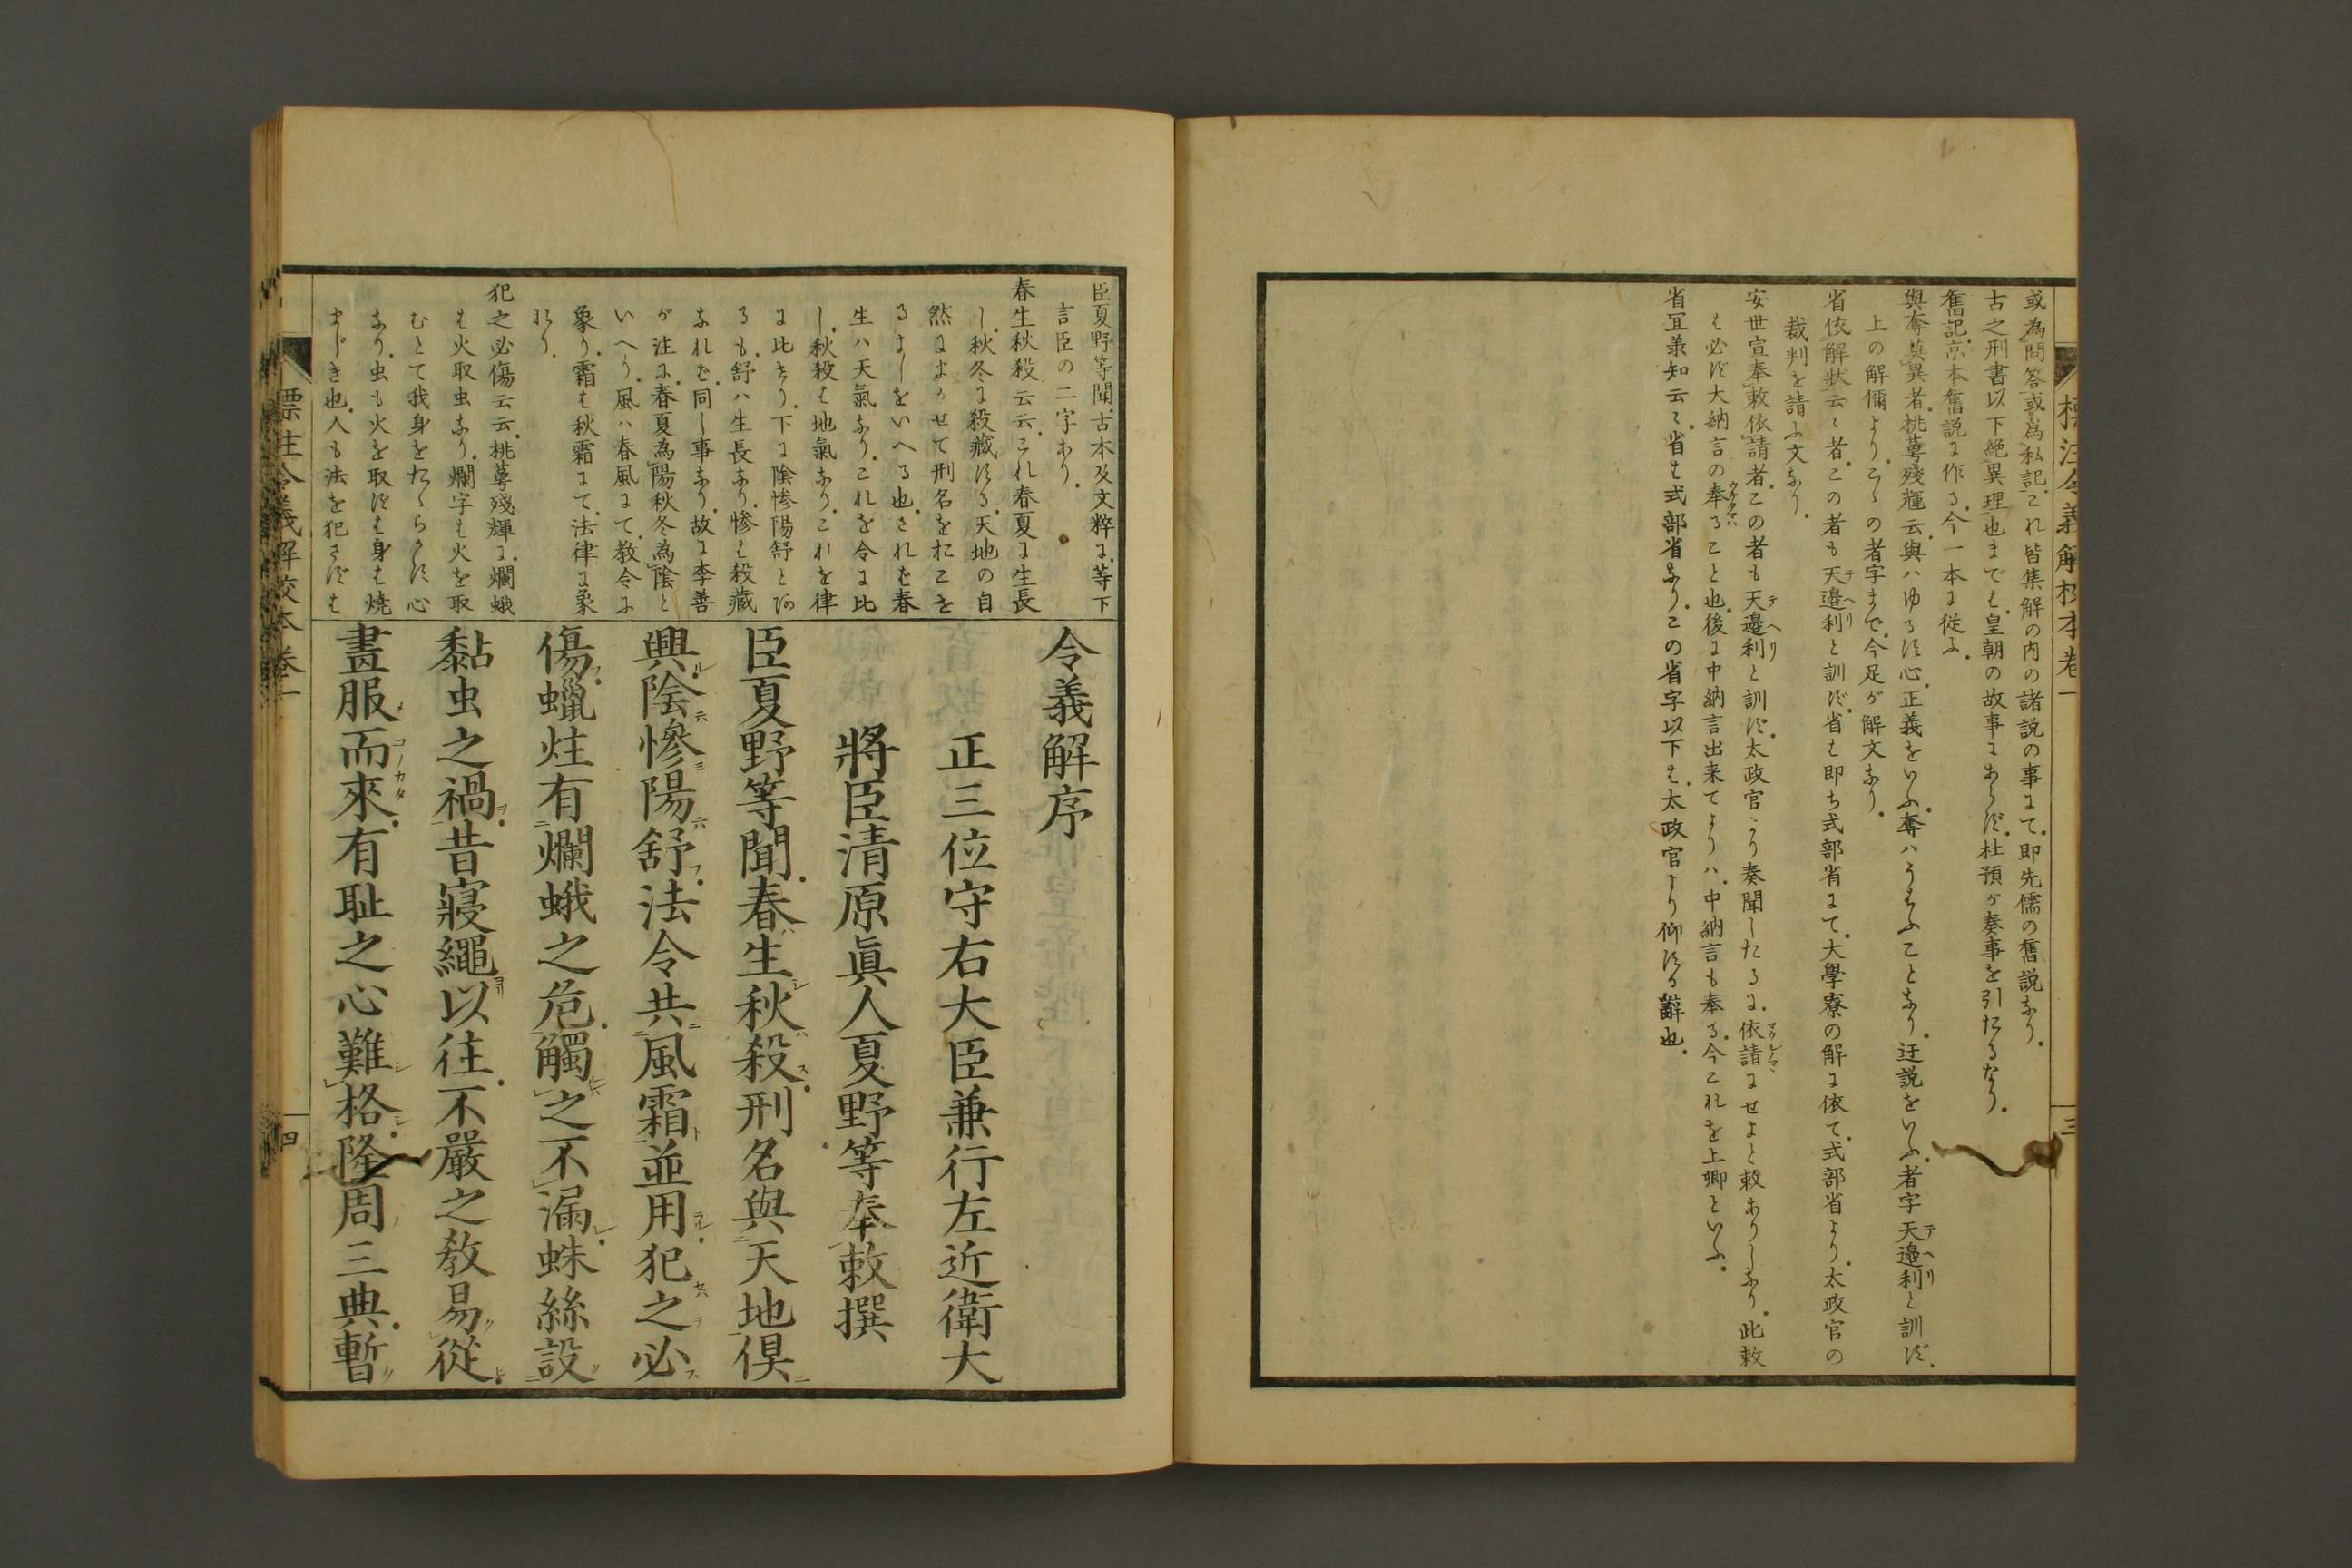 標注令義解校本卷一
三
或為問答或為私記これ皆集解の内の諸説の事にて即先儒の舊説なり
古之刑書以下絶異理也までは皇朝の故事にあらず杜預が奏事を引たるなり
舊記京本舊説に作る今一本に従ふ
與奪莫異者桃萼殘輝云與ハゆるす心正義をいふ奪ハうばふことなり迂説をいふ者字天邉利と訓ず
テヘリ
上の解偁よりこゝの者字まで今足が解文なり
省依解狀云〻者この者も天邉利と訓ず省は即ち式部省にて大學寮の解に依て式部省より太政官の
テヘリ
裁判を請ふ文なり
安世宣奉敕依請者この者も天邉利と訓ず太政官より奏聞したるに依請にせよと敕ありしなり此敕
テヘリ
は必ず大納言の奉ることも也後に中納言出来てよりハ中納言も奉る今これを上卿といふ
省冝羕知云〻省は式部省なりこの省字以下は太政官より仰する辭也
臣夏野等聞古本及文粹に等下
言臣の二字あり
春生秋殺云云これ春夏に生長
し秋冬に殺藏する天地の自
然によりせて刑名をおこを
るよしをいへる也されは春
生ハ天氣なりこれを令に比
し秋殺は地氣なりこれを律
に比せり下に陰惨陽舒とあ
るも舒ハ生長なり惨は殺藏
なれば同し事なり故に李善
が注に春夏為陽秋冬為陰と
いへり風ハ春風にて教令に
象り霜は秋霜にて法律に象
れり
犯之必傷云云桃萼殘輝に爛蛾
は火取虫なり爛字は火を取
むとて我身をたゝらかす心
なり虫も火を取ずは身は焼
まじき也人も法を犯さずは
令義解序
正三位守右大臣兼行左近衛大
將臣清原眞人夏野等奉敕撰
臣夏野等聞春生秋殺刑名與天地俱
興陰惨陽舒法令共風霜並用犯之必
傷蠟炷有爛蛾之危觸之不漏蛛絲設
黏虫之禍昔寢繩以往不嚴之教易從
畫服而來有耻之心難格隆周三典暫
標注令義解校本卷一
四